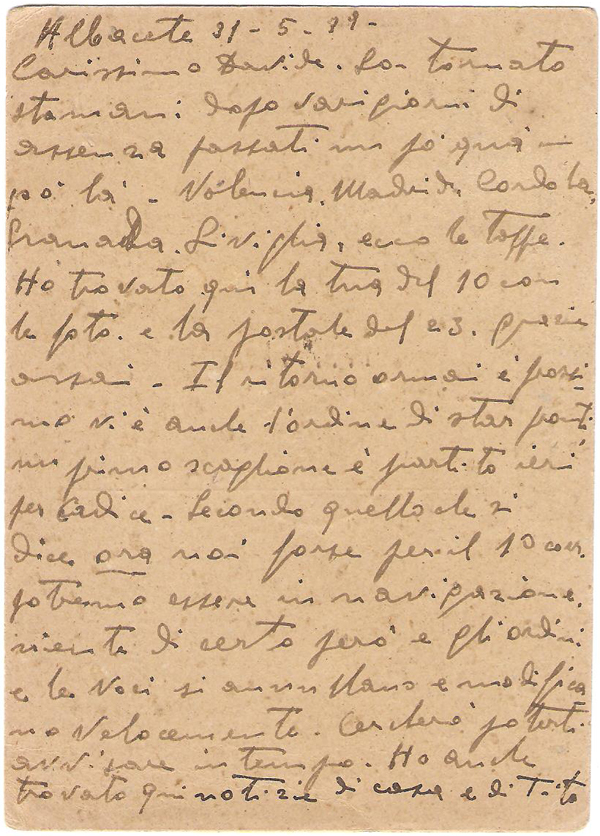 Albacete 31-5-39-
Carissimo Davide. Son tornato
stamani dopo vari giorni di
assenza passati un po' qua un
po' là - Valencia, Madrid, Cordoba,
Granada, Siviglia, ecco le tappe.
Ho trovato qui la tua del 10 con
le foto. e la postale del 23. grazie
assai - Il ritorno ormai è prossi-
mo vi è anche l'ordine di star pronti
un primo scaglione è partito ieri
per Cadice - Secondo quello che si
dice ora noi forse per il 10 corr.
potremo essere in navigazione,
niente di certo però e gli ordini
e le voci si annullano e modifica
no velocemente. Cercherò poterti
avvisare in tempo. Ho anche
trovato qui notizie di casa e di Tito